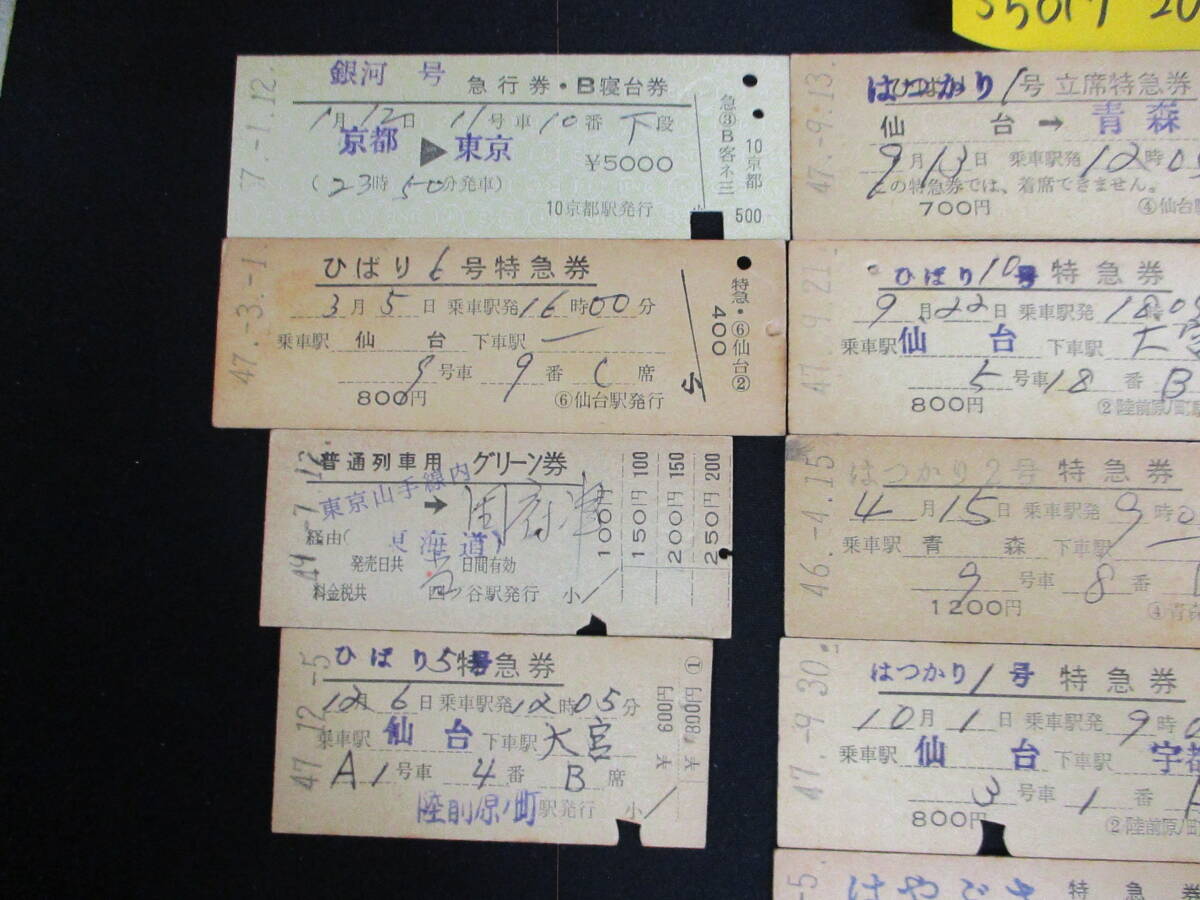 S5017 20
57.-1.12.
銀河 号 急行券・B寝台券
1月12日 11号車10番 下段
京都 ▶ 東京 ¥5000
(23時50分発車)
10京都駅発行
小
急③B客ネ三
10京都
500
47.-3.-1
ひばり6号特急券
3月5日 乗車駅発16時00分
乗車駅 仙台 下車駅 ー
9号車 9番 C席
800円 ⑥仙台駅発行
小
特急・⑥仙台②
400
49.-7.12.
普通列車用 グリーン券
東京山手線内 → 国府津
経由(東海道)
発売日共 日間有効
料金税共 四ツ谷駅発行 小
100円
150円 100
200円 150
250円 200
47.12.-5
ひばり5号特急券
12月6日 乗車駅発12時05分
乗車駅 仙台 下車駅 大宮
A1号車 4番 B席
陸前原ノ町駅発行 小
600円
800円 ①
47.-9.13.
はつかり1号 立席特急券
仙台 → 青森
9月13日 乗車駅発12時0
この特急券では、着席できません。
700円 ④仙台駅
47.-9.21.
ひばり10号 特急券
9月22日 乗車駅発18時0
乗車駅 仙台 下車駅 大宮
5号車18番 B
800円 ②陸前原ノ町駅
46.-4.15
はつかり2号 特急券
4月15日 乗車駅発9時0
乗車駅 青森 下車駅 ー
9号車 8番
1200円 ④青森
47.-9.30.
はつかり1号 特急券
10月1日 乗車駅発9時
乗車駅 仙台 下車駅 宇都
3号車 1番
800円 ②陸前原ノ町
-5
はやぶさ 特急券